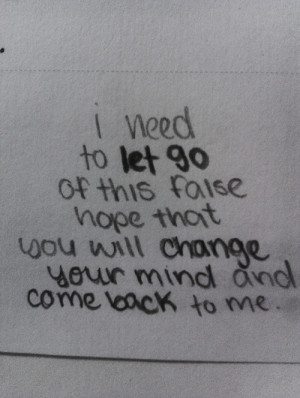 i need
to let go
of this false
hope that
you will change
your mind and
come back to me.